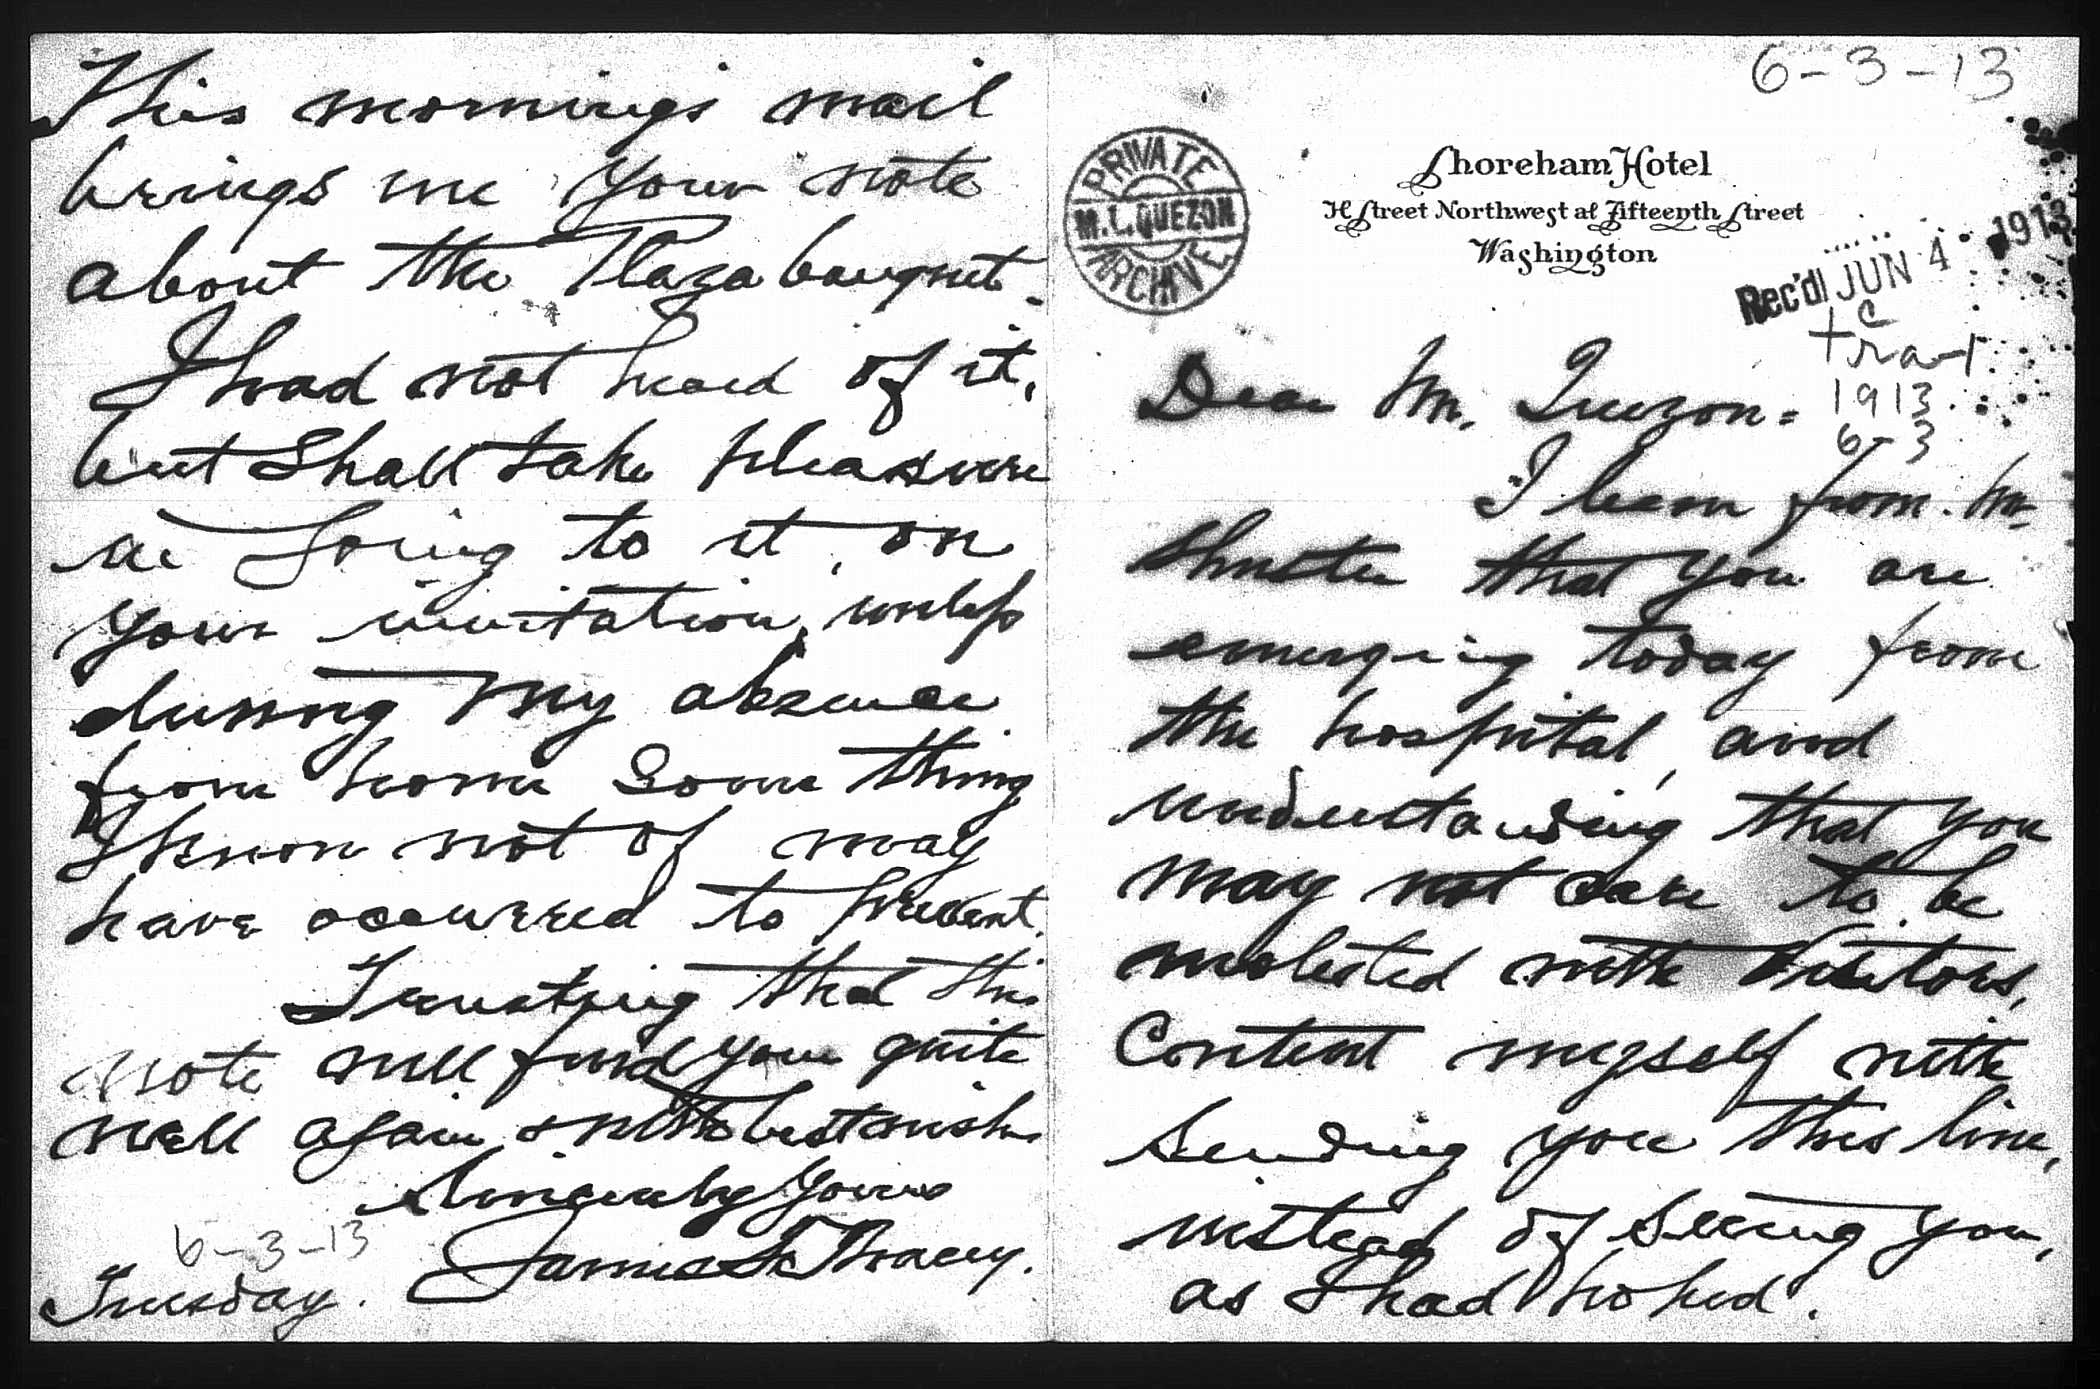 6-3-13
PRIVATE
M.L. QUEZON
ARCHIVE
Shoreham Hotel
H Street Northwest at Fifteenth Street
Washington
Rec'd JUN 4 1913
1913
6-3
Dear Mr. Quezon=
I learn from Mr.
Shuster that you are
emerging today from
the hospital, and
understanding that you
may not care to be
molested with visitors,
content myself with
sending you this line,
instead of seeing you,
as I had hoped.
This mornings mail
brings me your note
about the Plaza banquet.
I had not heard of it,
but shall take pleasure
in going to it, on
your invitation, unless
during my absence
from home some thing
I know not of may
have occurred to prevent.
Trusting that this
note will find you quite
well again & with best wishes
Sincerely yours
James
6-3-13
Tuesday.